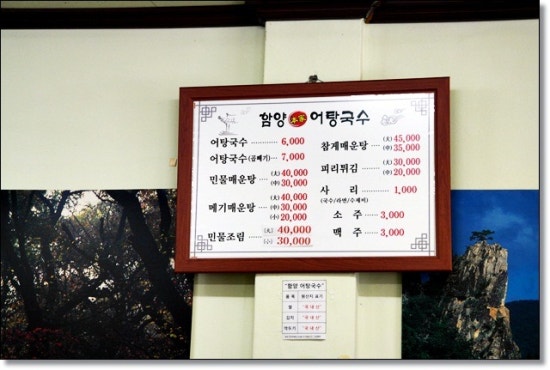 함양 本家 어탕국수
어탕국수 6,000
어탕국수(곱빼기) 7,000
민물매운탕 (大) 40,000
(中) 30,000
메기매운탕 (大) 40,000
(中) 30,000
(小) 20,000
민물조림 (大) 40,000
(小) 30,000
참게매운탕 (大) 45,000
(中) 35,000
피리튀김 (大) 30,000
(中) 20,000
사 리 1,000
(국수/라면/수제비)
소 주 3,000
맥 주 3,000
"함양 어탕국수"
품목 원산지 표기
쌀 "국내산"
김치 "국내산"
"국내산"